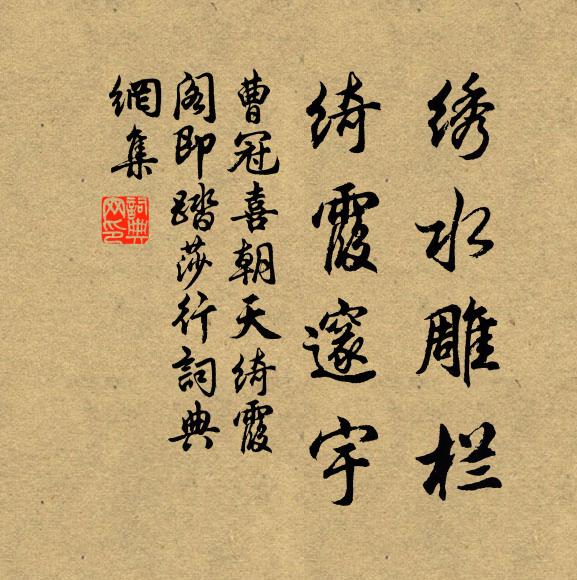 绣水雕栏
绮霞邃宇
曹冠喜朝天绮霞
阁即踏莎行詞典
網集
詞典網印